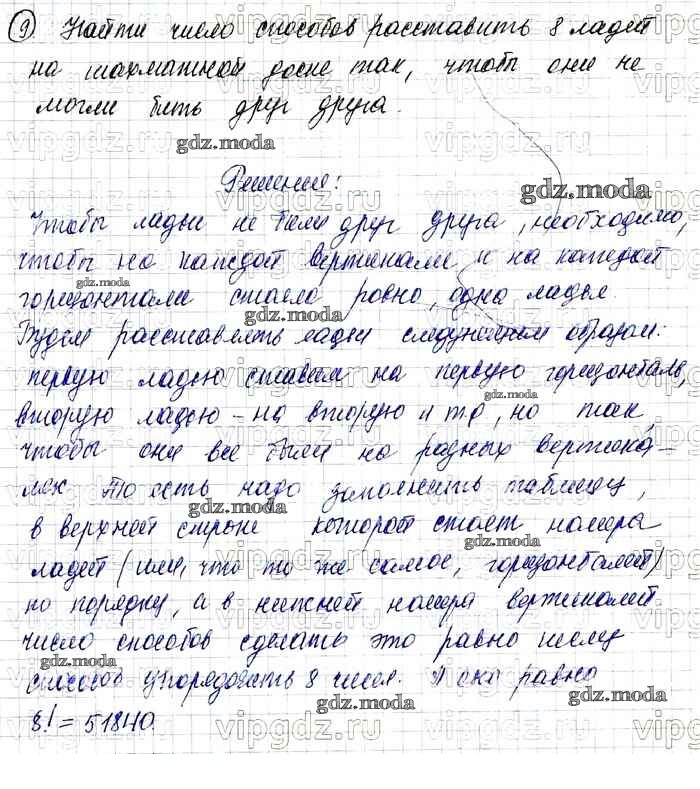 9) Найти число способов расставить 8 ладей
на шахматной доске так, чтобы они не
могли бить друг друга.
Решение:
Чтобы ладьи не били друг друга, необходимо,
чтобы на каждой вертикали и на каждой
горизонтали стаяло ровно одна ладья.
Будем расставлять ладьи следующим образом:
первую ладью ставим на первую горизонталь,
вторую ладью – на вторую и тд, но так,
чтобы они все были на разных вертика-
лях То есть надо заполнить таблицу,
в верхней строке которой стаят номера
ладей (или, что то же самое, горизонталей)
по порядку, а в нижней номера вертикалей
число способов сделать это равно числу
способов упорядочить 8 чисел. И оно равно
8! = 51840.
gdz.moda
vipgdz.ru